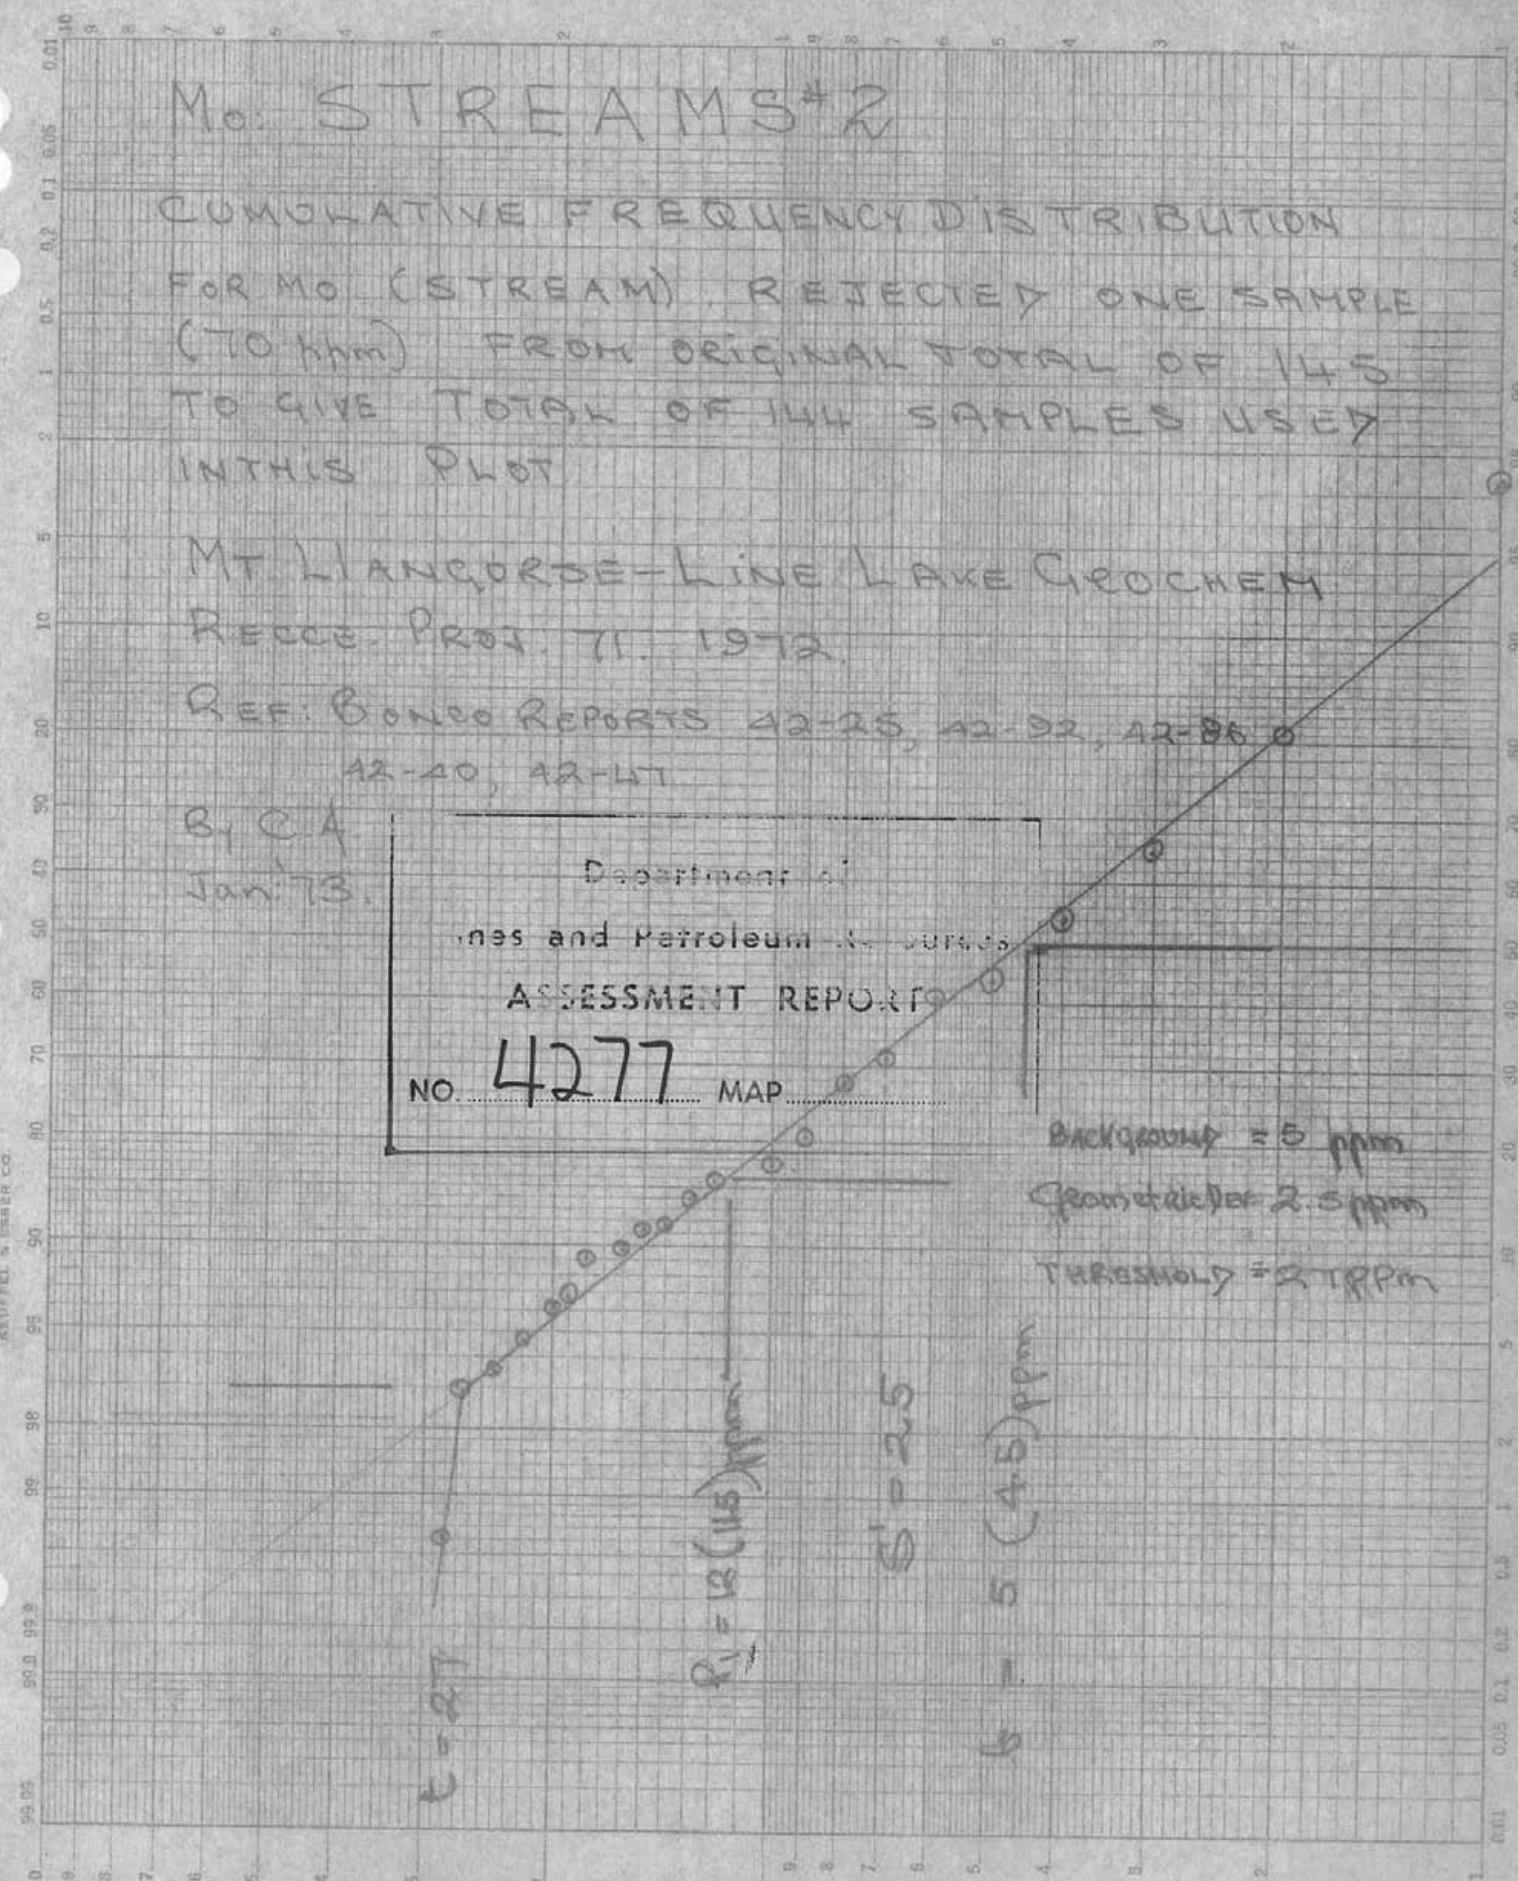 Mo. STREAMS #2
CUMULATIVE FREQUENCY DISTRIBUTION
FOR MO (STREAM). REJECTED ONE SAMPLE
(70 ppm) FROM ORIGINAL TOTAL OF 145
TO GIVE TOTAL OF 144 SAMPLES USED
IN THIS PLOT
MT LLANGORSE-LINE LAKE GEOCHEM
RECCE. PROJ. 71. 1972.
REF: BONCO REPORTS 42-25, 42-92, 42-86
42-40, 42-47
By C.A
Jan. '73.
Department of
ines and Petroleum Resources
ASSESSMENT REPORT
NO. 4277 MAP
BACKGROUND = 5 ppm
Geometric Dev 2.5 ppm
THRESHOLD = 27 ppm
t = 27
P1 = 12 (11.5) ppm
S' = 2.5
b = 5 (4.5) ppm
KEUFFEL & ESSER CO.
0.01 0.05 0.1 0.2 0.5 1 2 5 10 20 30 40 50 60 70 80 90 95 98 99 99.8 99.9 99.99
10 9 8 7 6 5 4 3 2 1 9 8 7 6 5 4 3 2 1
95 90 80 70 60 50 40 30 20 10 5 2 1 0.5 0.2 0.1 0.05 0.01